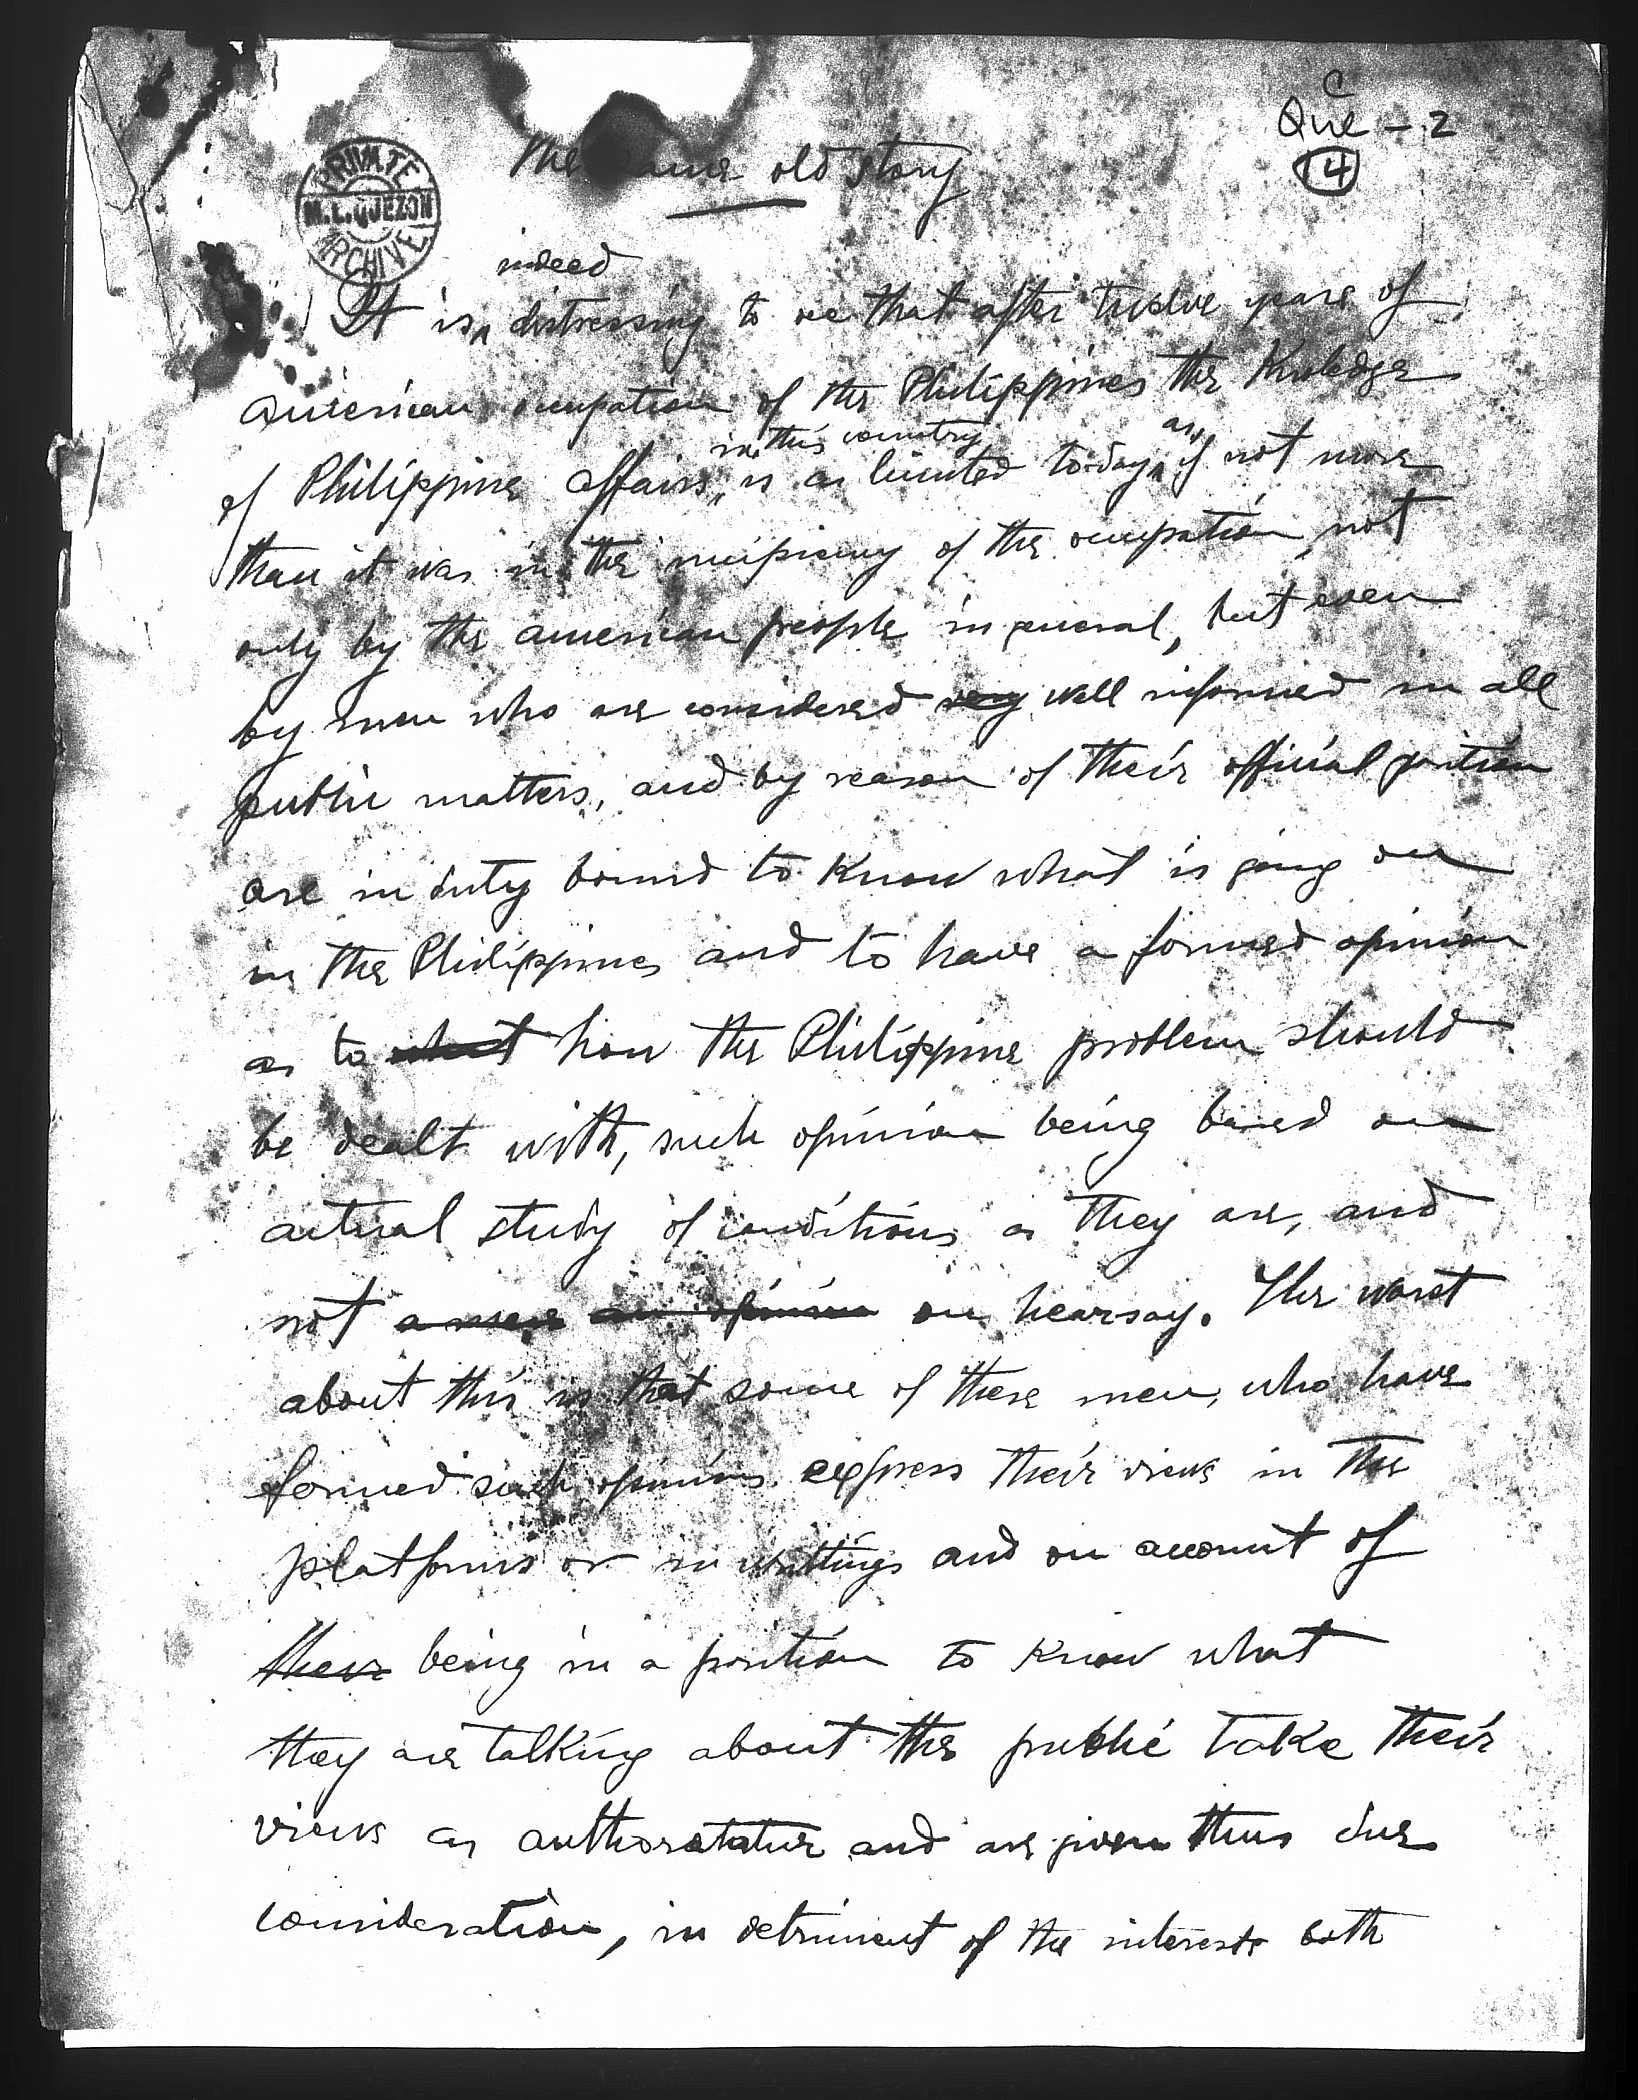 C
Que - 2
14
The same old story
PRIVATE
M. L. QUEZON
ARCHIVE
indeed
It is distressing to see that after twelve years of
American occupation of the Philippines the Knoledge
in this country as,
of Philippine affairs is as limited to-day if not more
than it was in the incipiency of the occupation, not
only by the American people in general, but even
by men who are considered very well informed in all
public matters, and by reason of their official position
are in duty bound to know what is going on
in the Philippines and to have a formed opinion
as to what how the Philippine problem should
be dealt with, such opinion being based on
actual study of conditions as they are, and
not a mere an opinion on hearsay. The worst
about this is that some of these men, who have
formed such opinions express their views in the
platforms or in writtings and on account of
their being in a position to know what
they are talking about the public take their
views as authoratative and are given thus due
consideration, in detriment of the interests both